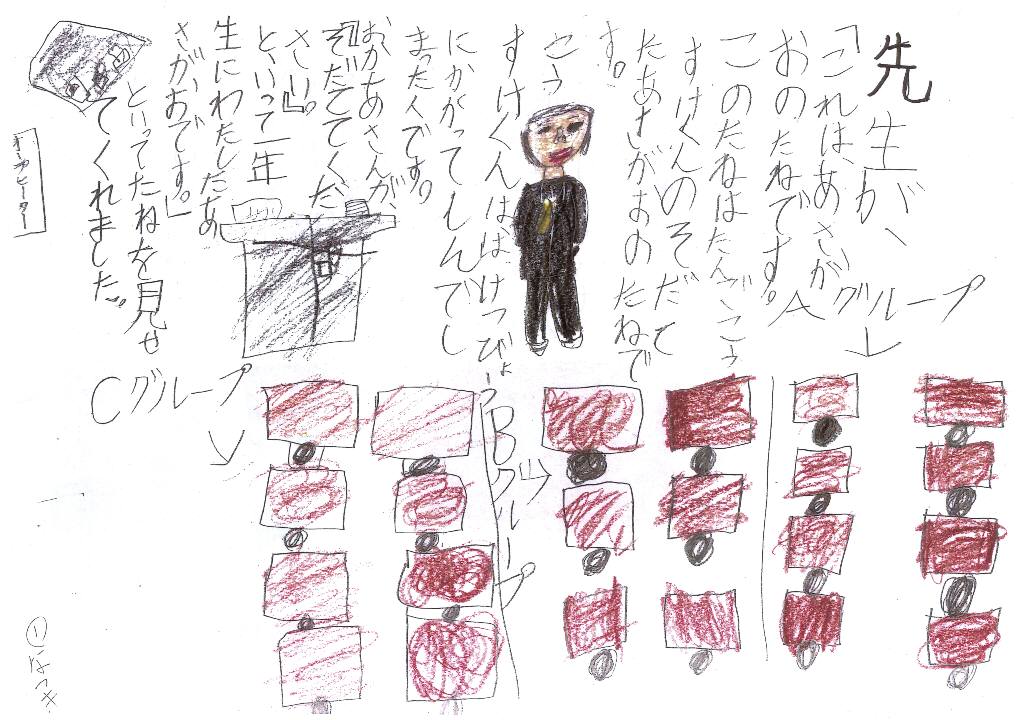 先生が、
「これはあさが
おのたねです。
このたねはたんごこう
すけくんのそだて
たあさがおのたねで
す。
こう
すけくんはばけつびょう
にかかってしんでし
まったんです。
おかあさんが、
『そだててくだ
さい。』
といって一年
生にわたしたあ
さがおです。」
といってたねを見せ
てくれました。
Aグループ
Bグループ
Cグループ
①なつき